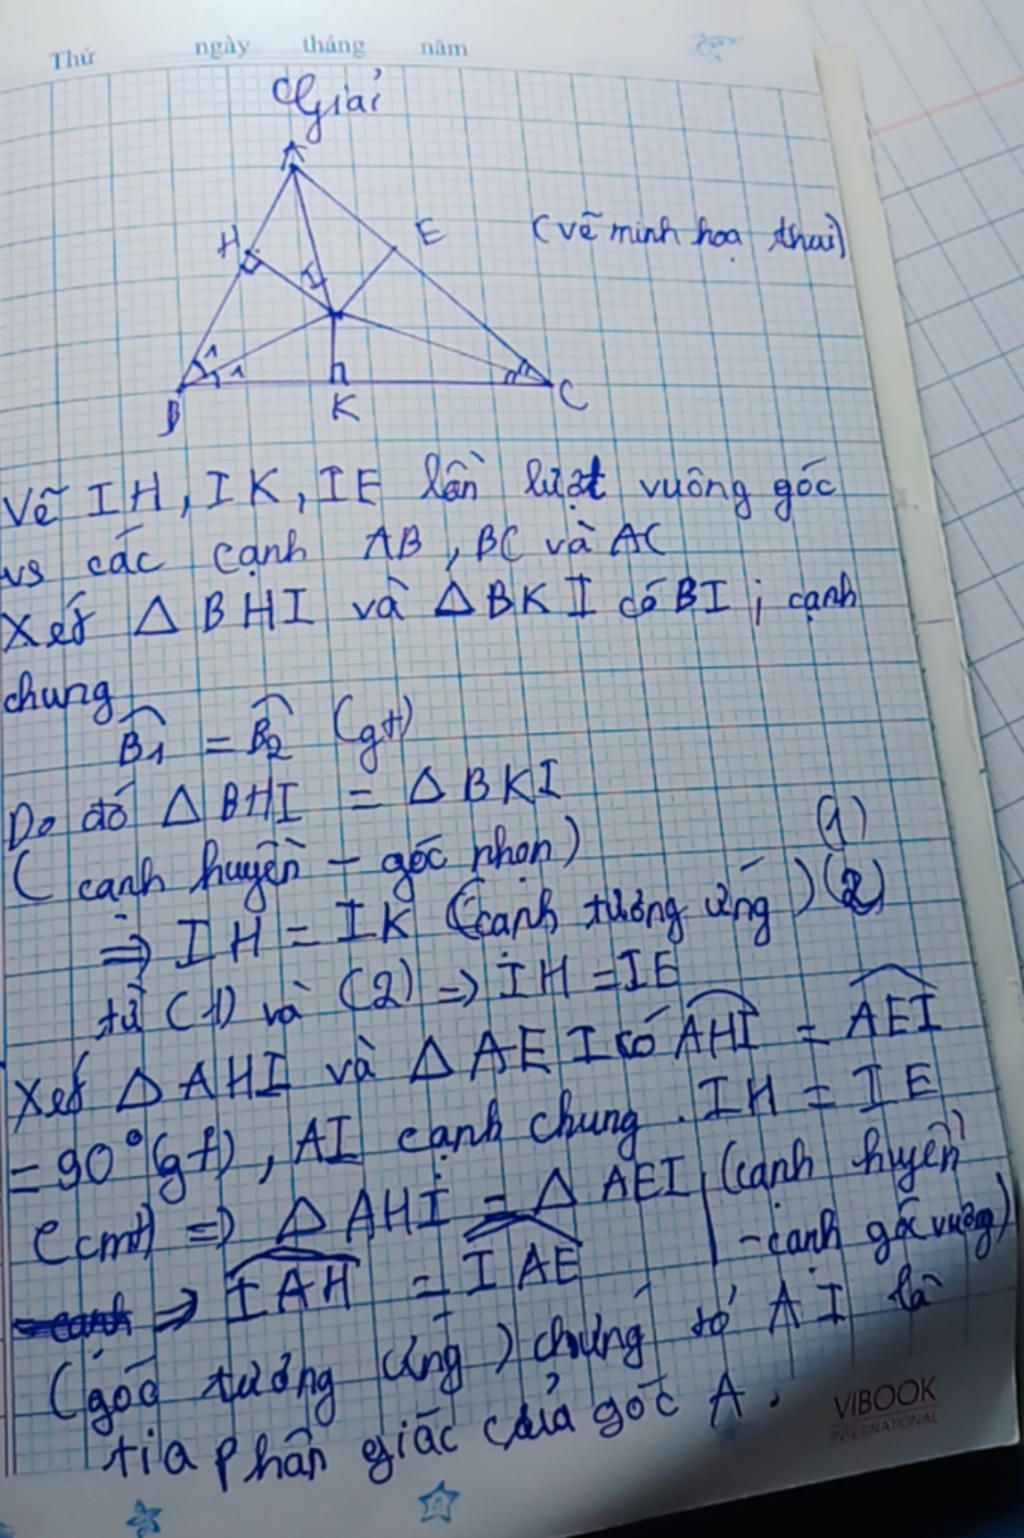 Thứ ngày tháng năm
Giải
A
H
E
(vẽ minh hoạ thui)
I
1
1
B
K
C
Vẽ IH, IK, IE lần lượt vuông góc
vs các cạnh AB, BC và AC
Xét △BHI và △BKI có BI ; cạnh
chung
B̂1 = B̂2 (gt)
Do đó △BHI = △BKI
(cạnh huyền - góc nhọn) (1)
=> IH = IK (cạnh tương ứng) (2)
từ (1) và (2) => IH = IE
Xét △AHI và △AEI có AHI = AEI
= 90° (gt), AI cạnh chung. IH = IE
(cmt) => △AHI = △AEI (cạnh huyền
- cạnh góc vuông)
=> IAH = IAE
(góc tương ứng) chứng tỏ AI là
tia phân giác của góc A.
VIBOOK
INTERNATIONAL